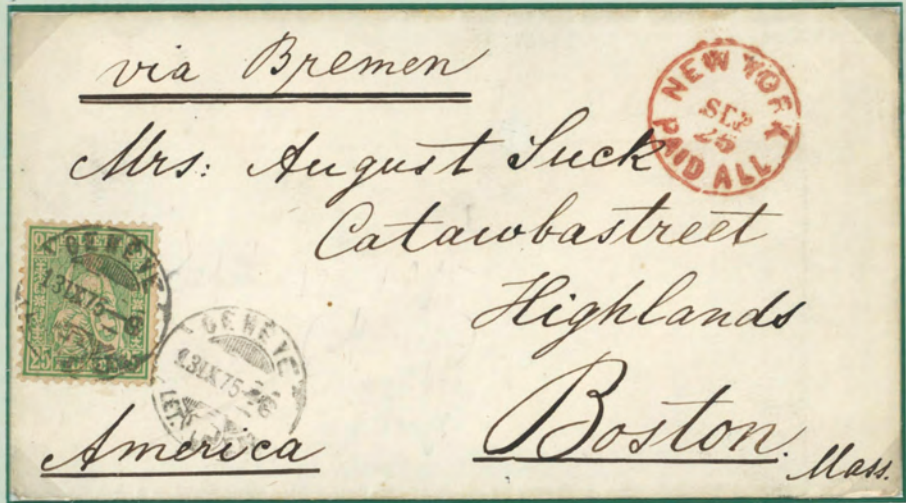 via Bremen
NEW YORK
SEP
25
PAID ALL
Mrs: August Suck
Catawbastreet
Highlands
Boston.
Mass.
America
GENÈVE
13 IX 75
GENÈVE
13 IX 75
LET.
25